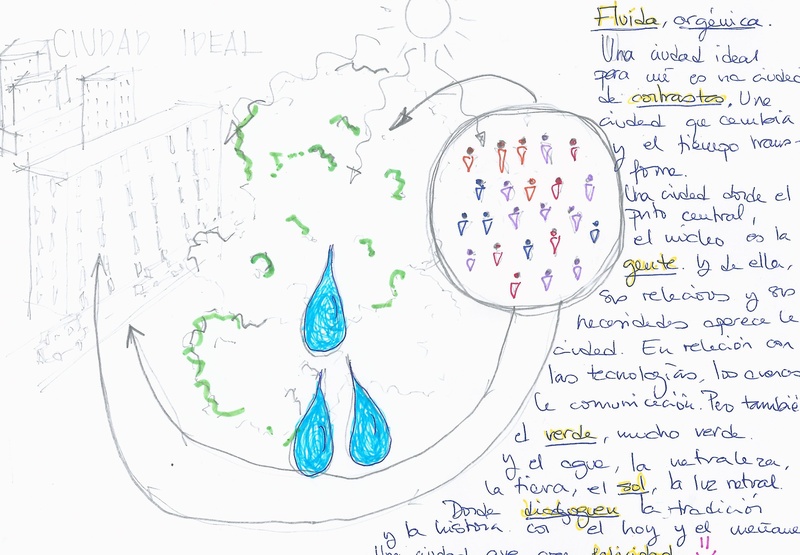 CIUDAD IDEAL
Fluida, orgánica.
Una ciudad ideal
para mí es una ciudad
de contrastes. Una
ciudad que cambia
y el tiempo trans-
forma.
Una ciudad donde el
pnto central,
el núcleo es la
gente. Y de ella,
sus relaciones y sus
necesidades aparece la
ciudad. En relación con
las tecnologías, los avances
la comunicación. Pero también
el verde, mucho verde.
y el agua, la naturaleza,
la tierra, el sol, la luz natural.
Donde dialoguen la tradición
y la historia con el hoy y el mañana
Una ciudad que felicidad !!